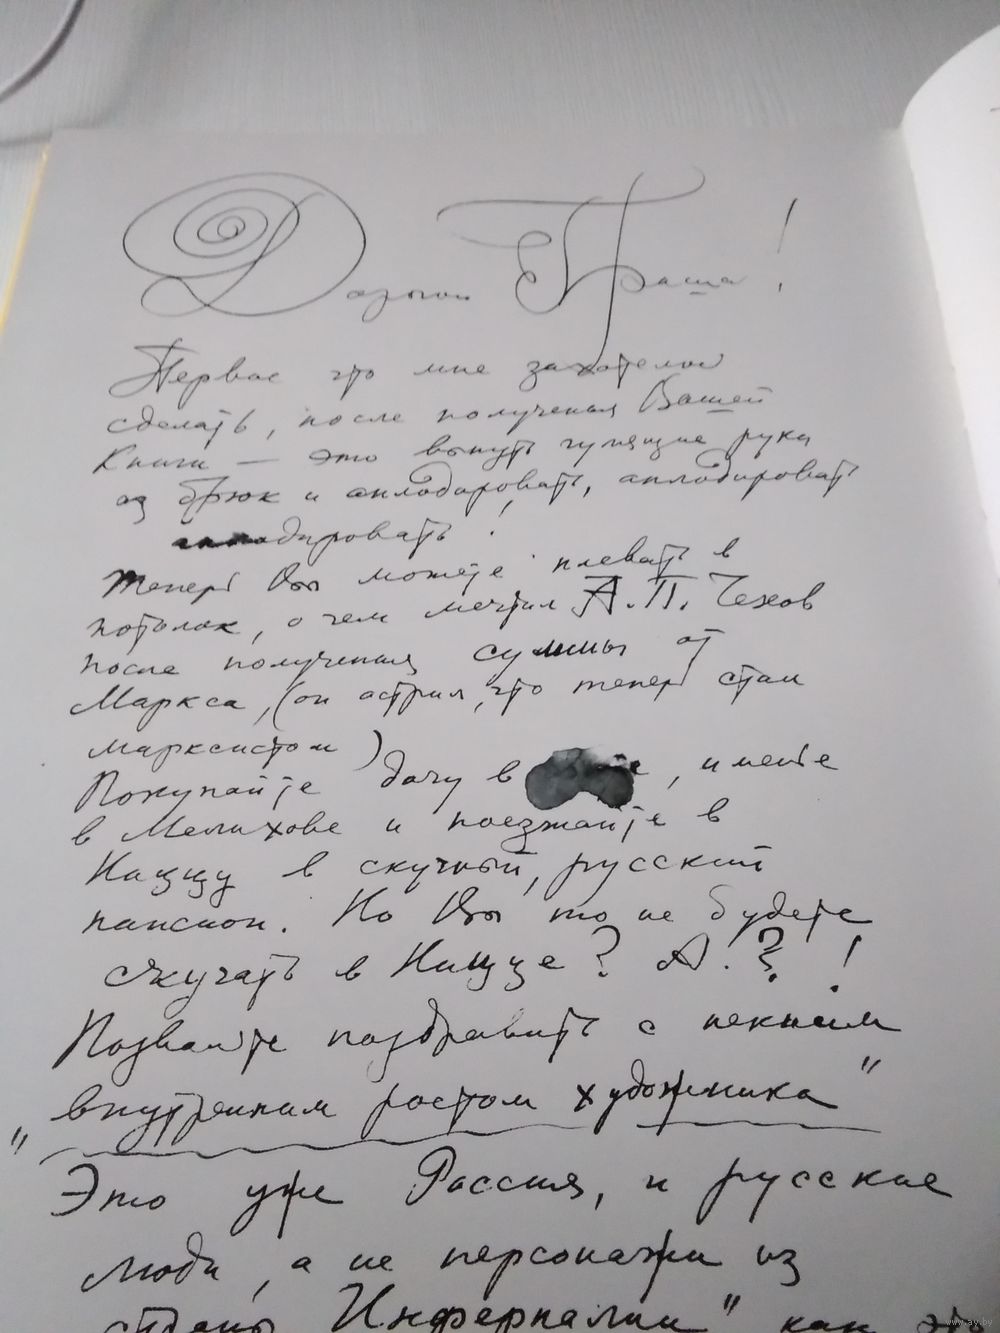 Дорогой Паша!
Первое что мне захотелось
сделать, после получения Вашей
Книги — это вынуть гулящие руки
из брюк и аплодировать, аплодировать
аплодировать!
теперь Вы можете плевать в
потолок, о чем мечтал А.П. Чехов
после получения суммы от
Маркса, (он острил, что теперь стал
марксистом)
Покупайте дачу в , имение
в Мелихове и поезжайте в
Ниццу в скучный, русский
пансион. Но Вы то не будете
скучать в Ницце? А.?!
Позвольте поздравить с неким
"внутренним ростом художника"
Это уже Россия, и русские
люди, а не персонажи из
страны Инферналии" как
www.ay.by